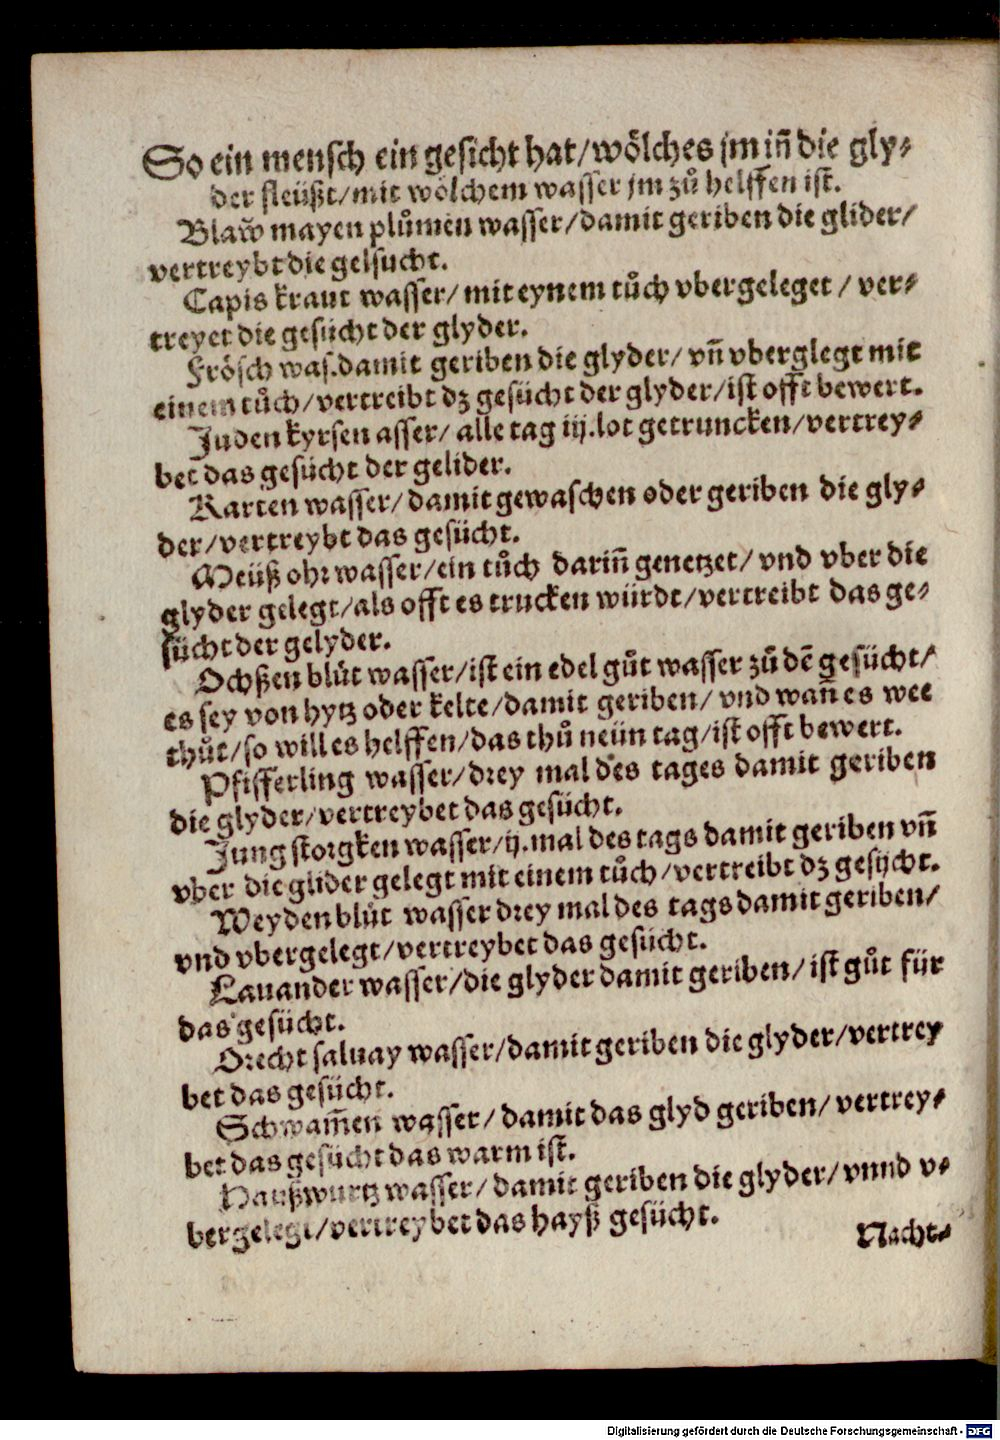 So ein mensch ein gesicht hat/wölches jm iñ die gly⸗
der fleüßt/mit wölchem wasser jm zů helffen ist.
Blaw̃ mayen plůmen wasser/damit geriben die glider/
vertreybt die gelsucht.
Capis kraut wasser/ mit eynem tůch vbergeleget / ver⸗
treyet die gesücht der glyder.
Frösch was.damit geriben die glyder/ vñ vberglegt mit
einem tůch/vertreibt dz gesücht der glyder/ist offt bewert.
Juden kyrsen asser/ alle tag iij.lot getruncken/vertrey⸗
bet das gesücht der gelider.
Karten wasser/ damit gewaschen oder geriben die gly⸗
der/vertreybt das gesücht.
Meüß ohr wasser/ein tůch dariñ genetzet/ vnd vber die
glyder gelegt/als offt es trucken würdt/vertreibt das ge⸗
sücht der gelyder.
Ochßen blůt wasser/ist ein edel gůt wasser zů dẽ gesücht/
es sey von hytz oder kelte/damit geriben/ vnd wañ es wee
thůt/so will es helffen/das thů neün tag/ist offt bewert.
Pfifferling wasser/drey mal des tages damit geriben
die glyder/vertreybet das gesücht.
Jung storgken wasser/ij.mal des tags damit geriben vñ
vber die glider gelegt mit einem tůch/vertreibt dz gesücht.
Weyden blůt wasser drey mal des tags damit geriben/
vnd vbergelegt/vertreybet das gesücht.
Lauander wasser/die glyder damit geriben/ist gůt für
das gesücht.
Orecht saluay wasser/damit geriben die glyder/vertrey
bet das gesücht.
Schwam̃en wasser/ damit das glyd geriben/ vertrey⸗
bet das gesücht das warm ist.
Haußwurtz wasser/ damit geriben die glyder/ vnnd v⸗
bergelegt/vertreybet das hayß gesücht.
Nacht⸗
Digitalisierung gefördert durch die Deutsche Forschungsgemeinschaft - DFG